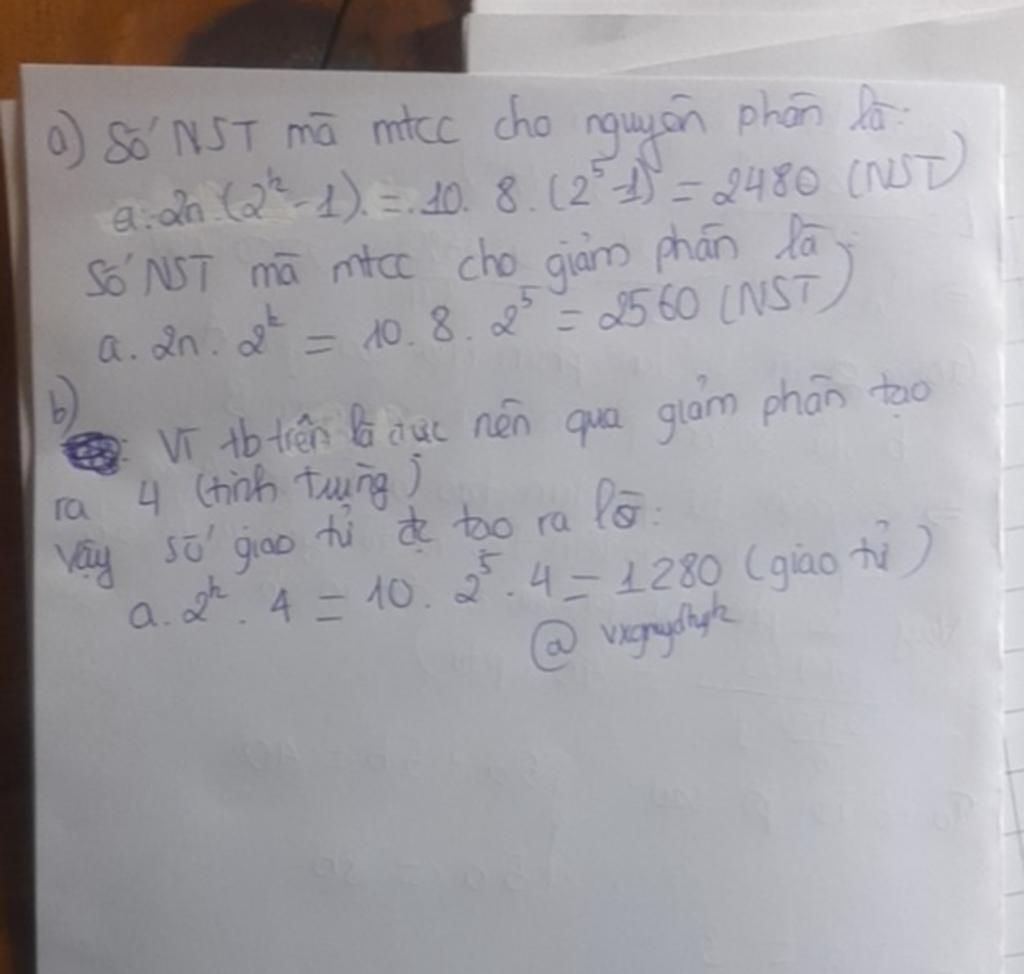 a) Số NST mà mtcc cho nguyên phân là:
a.2n.(2^k-1).=.10. 8.(2^5-1) = 2480 (NST)
Số NST mà mtcc cho giảm phân là:
a. 2n. 2^k = 10. 8. 2^5 = 2560 (NST)
b)
: Vì tb trên là đực nên qua giảm phân tạo
ra 4 (tinh trùng)
Vậy số giao tử đc tạo ra là:
a. 2^k. 4 = 10. 2^5. 4 = 1280 (giao tử)
@